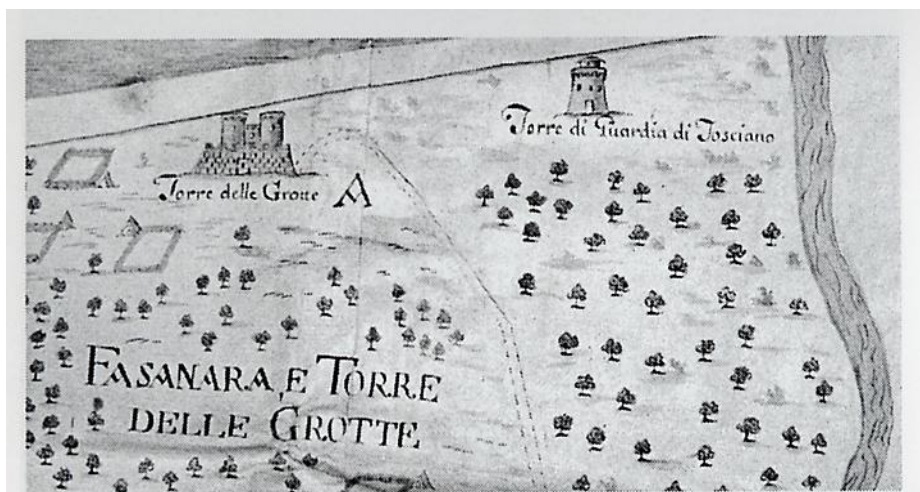 Torre di Guardia di Tosciano
Torre delle Grotte A
FASANARA, E TORRE
DELLE GROTTE